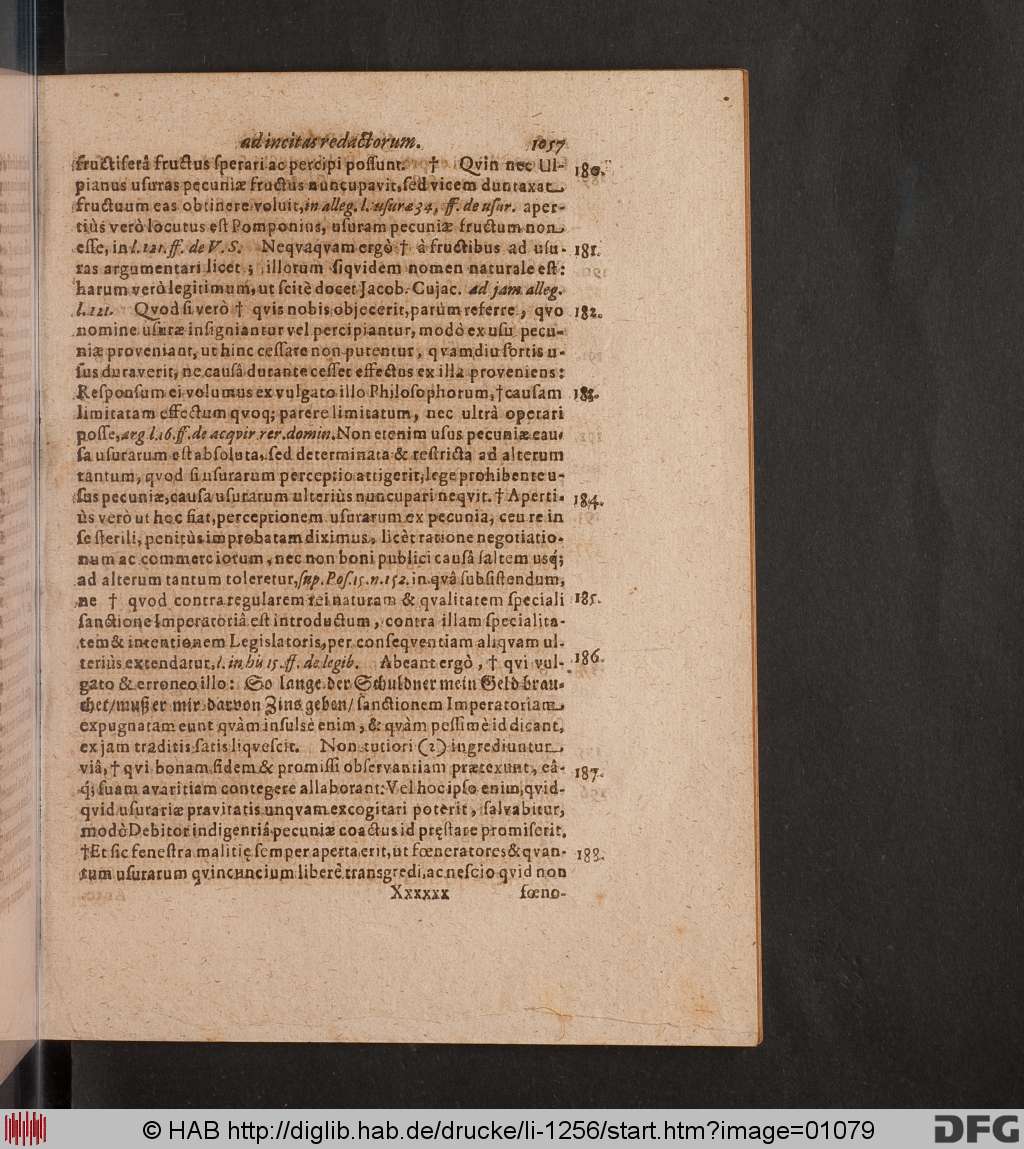 ad incitas redactorum. 1057
fructiferâ fructus ſperari ac percipi poſſunt. † Qvin nec Ul- 180.
pianus uſuras pecuniæ fructus nuncupavit, ſed vicem duntaxat
fructuum eas obtinere voluit, in alleg. l. uſuræ 34, ff. de uſur. aper-
tiùs verò locutus eſt Pomponius, uſuram pecuniæ fructum non
eſſe, in l. 121. ff. de V. S. Neqvaqvam ergò † à fructibus ad uſu- 181.
ras argumentari licet; illorum ſiqvidem nomen naturale eſt:
harum verò legitimum, ut ſcitè docet Jacob. Cujac. ad jam alleg.
l. 121. Qvod ſi verò † qvis nobis objecerit, parùm referre, qvo 182.
nomine uſuræ inſigniantur vel percipiantur, modò ex uſu pecu-
niæ proveniant, ut hinc ceſſare non putentur, qvamdiu ſortis u-
ſus duraverit, ne cauſâ durante ceſſet effectus ex illa proveniens:
Reſponſum ei volumus ex vulgato illo Philoſophorum, † cauſam 183.
limitatam effectum qvoq; parere limitatum, nec ultrà operari
poſſe, arg l. 16. ff. de acqvir. rer. domin. Non etenim uſus pecuniæ cau-
ſa uſurarum eſt abſoluta, ſed determinata & reſtricta ad alterum
tantum, qvod ſi uſurarum perceptio attigerit, lege prohibente u-
ſus pecuniæ, cauſa uſurarum ulteriùs nuncupari neqvit. † Aperti- 184.
ùs verò ut hoc fiat, perceptionem uſurarum ex pecunia, ceu re in
ſe ſterili, penitùs improbatam diximus, licèt ratione negotiatio-
num ac commerciorum, nec non boni publici cauſâ ſaltem usq́;
ad alterum tantum toleretur, ſup. Poſ. 15. n. 152. in qvâ ſubſiſtendum,
ne † qvod contra regularem rei naturam & qvalitatem ſpeciali 185.
ſanctione Imperatoriâ eſt introductum, contra illam ſpecialita-
tem & intentionem Legislatoris, per conſeqventiam aliqvam ul-
teriùs extendatur, l. in hù 15. ff. de legib. Abeant ergò, † qvi vul- 186.
gato & erroneo illo: So lange der Schuldner mein Geld brau-
chet/ muß er mir darvon Zins geben/ ſanctionem Imperatoriam
expugnatam eunt qvàm inſulsè enim, & qvàm peſſimè id dicant,
ex jam traditis ſatis liqveſcit. Non tutiori (2) ingrediuntur
viâ, † qvi bonam fidem & promiſſi obſervantiam prætexunt, eâ- 187.
q́; ſuam avaritiam contegere allaborant: Vel hoc ipſo enim, qvid-
qvid uſurariæ pravitatis unqvam excogitari poterit, ſalvabitur,
modò Debitor indigentiâ pecuniæ coactus id pręſtare promiſerit.
† Et ſic feneſtra malitię ſemper aperta erit, ut fœneratores & qvan- 188.
tum uſurarum qvincuncium liberè transgredi, ac neſcio qvid non
Xxxxxx fœno-
© HAB http://diglib.hab.de/drucke/li-1256/start.htm?image=01079
DFG